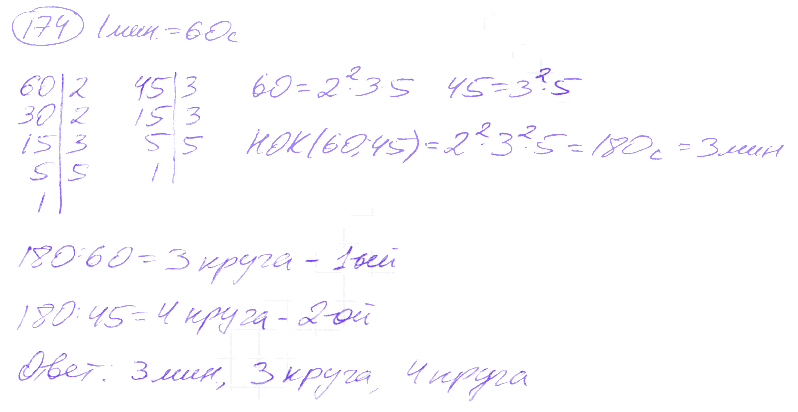 174 1 мин. = 60 с
60 | 2 45 | 3 60 = 2²·3·5 45 = 3²·5
30 | 2 15 | 3
15 | 3 5 | 5 НОК(60;45) = 2²·3²·5 = 180 с = 3 мин
5 | 5 1 |
1 |
180:60 = 3 круга - 1ый
180:45 = 4 круга - 2-ой
Ответ: 3 мин, 3 круга, 4 круга